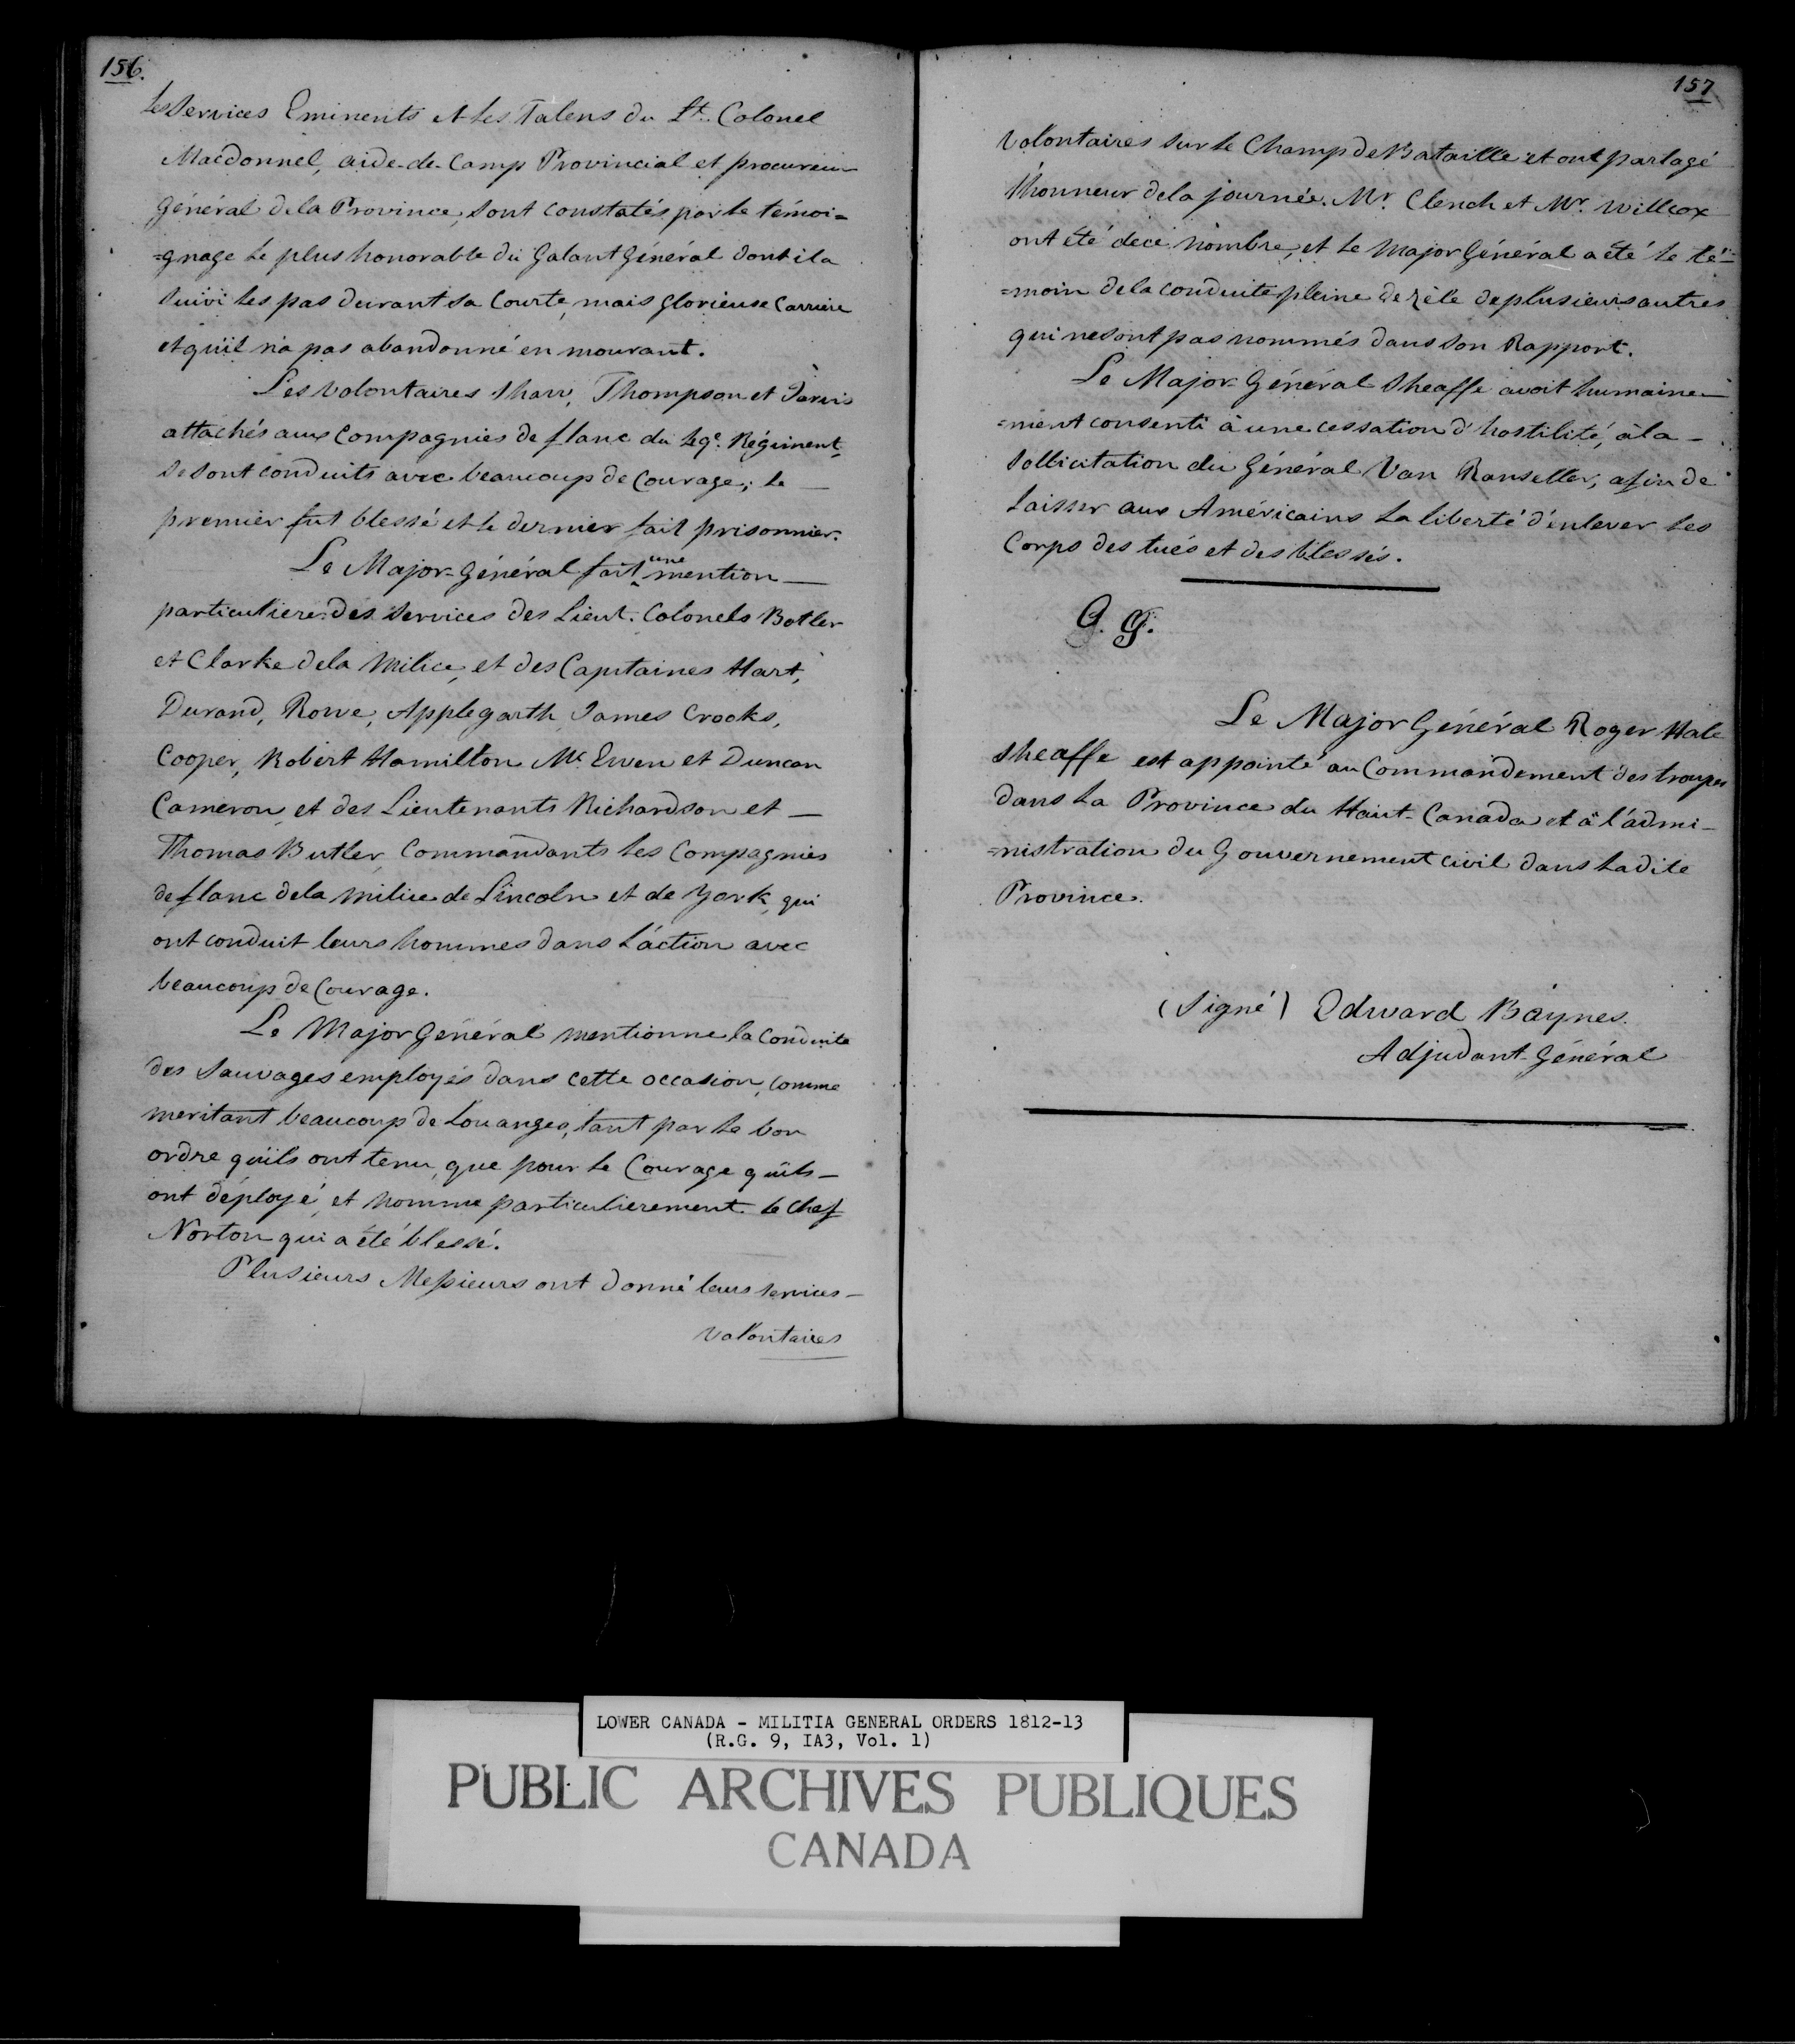 156.
Les Services Eminents et les Talens du Lt. Colonel
Macdonnel, aide-de-Camp Provincial et procureur
Général dela Province, sont constatés par le témoi=
=gnage le plus honorable du Galant Général dont il a
suivi les pas durant sa Courte, mais glorieuse Carriere
et qu'il n'a pas abandonné en mourant.
Les volontaires Shaw, Thompson et Jarvis
attachés aux Compagnies de flanc du 49e. Régiment,
se sont conduits avec beaucoup de Courage; le —
premier fut blessé et le dernier fait prisonnier.
Le Major-Général fait une mention —
particuliere des services des Lieut. Colonels Botler
et Clarke dela Milice, et des Capitaines Hart,
Durand, Rowe, Applegarth, James Crooks,
Cooper, Robert Hamilton, Mc. Ewen et Duncan
Cameron, et des Lieutenants Richardson et —
Thomas Butler, Commandants les Compagnies
de flanc dela milice de Lincoln et de York, qui
ont conduit leurs hommes dans l'action avec
beaucoup de Courage.
Le Major Général mentionne la Conduite
des Sauvages employés dans cette occasion, comme
meritant beaucoup de Louanges, tant par le bon
ordre qu'ils ont tenu, que pour le Courage qu'ils —
ont déployé, et nomme particulierement le Chef
Norton qui a été blessé.
Plusieurs Messieurs ont donné leurs services —
volontaires
157
volontaires sur le Champ de Bataille et ont partagé
l'honneur dela journée. Mr. Clench et Mr. Willcox
ont été de ce nombre, et le Major Général a été le té=
=moin dela conduite pleine de zèle de plusieurs autres
qui ne sont pas nommés dans son Rapport.
Le Major-Général Sheaffe avoit humaine—
=ment consenti à une cessation d'hostilité, à la —
sollicitation du Général Van Ranseller, afin de
laisser aux Américains la liberté d'enlever les
Corps des tués et des blessés.
G. G.
Le Major Général Roger Hale
Sheaffe est appointé au Commandement des troupes
dans la Province du Haut-Canada et à l'admi—
=nistration du Gouvernement civil dans ladite
Province.
(Signé) Edward Baynes.
Adjudant-Général
LOWER CANADA - MILITIA GENERAL ORDERS 1812-13
(R.G. 9, IA3, Vol. 1)
PUBLIC ARCHIVES PUBLIQUES
CANADA